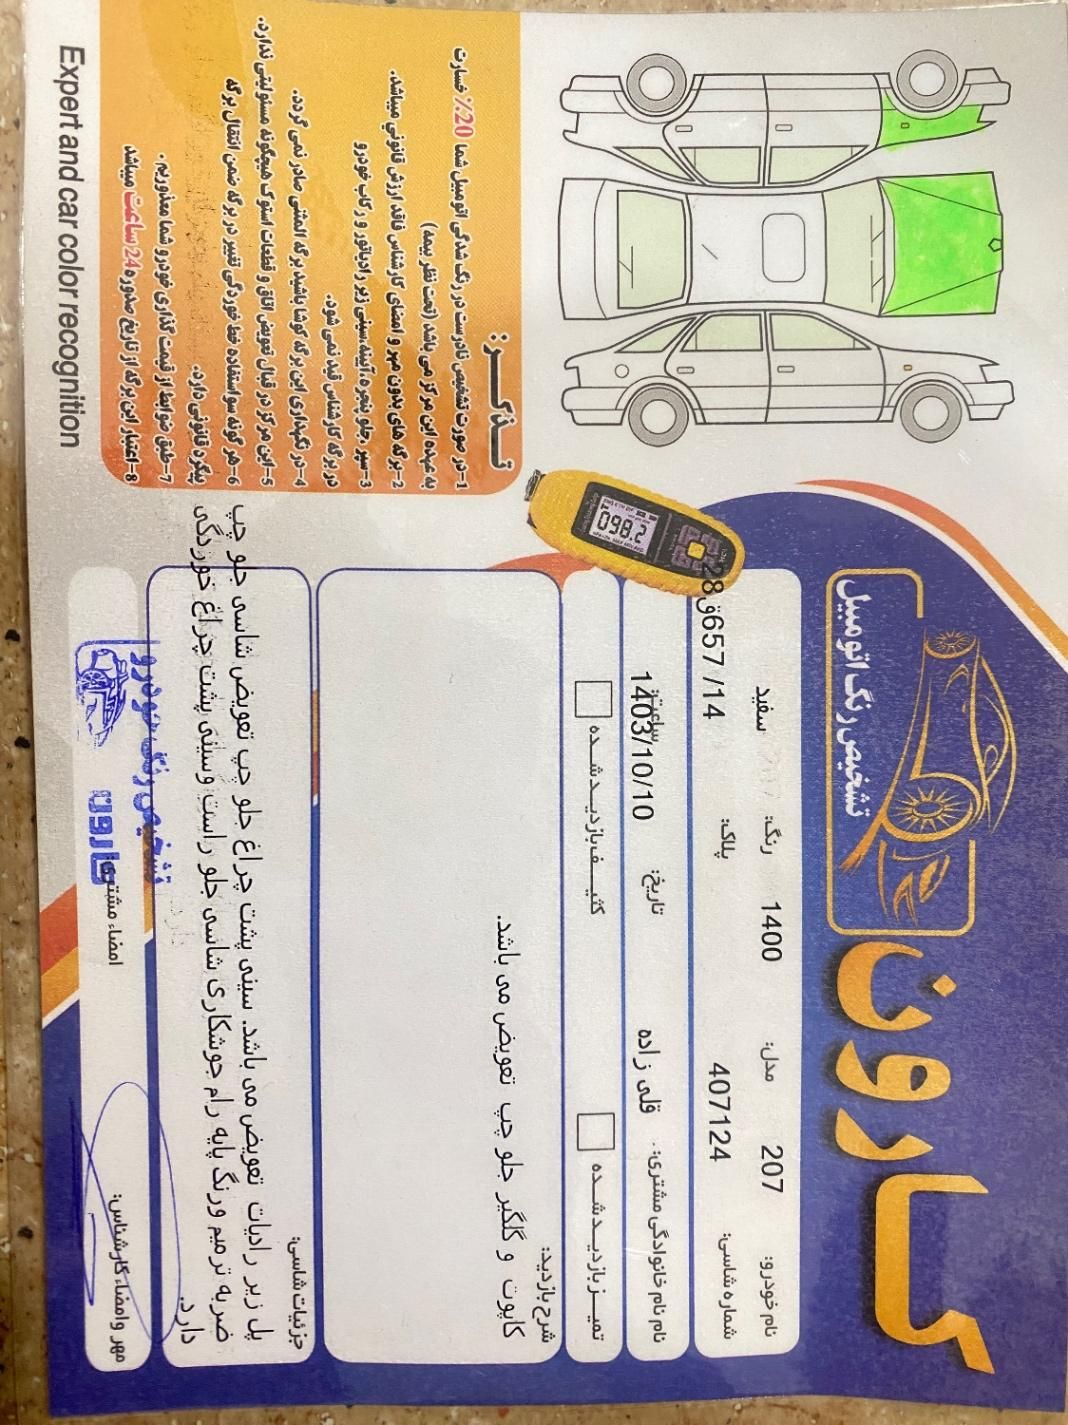 کارون
تشخیص رنگ اتومبیل
نام خودرو: 207 مدل: 1400 رنگ: سفید
شماره شاسی: 407124 پلاک: 14/ 657ق28
نام نام خانوادگی مشتری: قلی زاده تاریخ: 1403/10/10 ساعت:
تمیـز بازدیـد شـده کثیـف بازدیـد شـده
شرح بازدید:
کاپوت و گلگیر جلو چپ تعویض می باشد.
جزئیات شاسی:
پل زیر رادیات تعویض می باشد. سینی پشت چراغ جلو چپ تعویض شاسی جلو چپ
ضربه ترمیم ورنگ پایه رام جوشکاری شاسی جلو راست وسینی پشت چراغ خوردگی
دارد.
مهر وامضاء کارشناس: امضاء مشتری:
تشخیص رنگ خودرو
کارون
098.2
تـذکـر:
1-در صورت تشخیص نادرست در رنگ شدگی اتومبیل شما 20٪ خسارت
به عهده این مرکز می باشد (تحت نظر بیمه)
2-برگه های بدون مهر و امضای کارشناس فاقد ارزش قانونی میباشد.
3-سپر ،جلو پنجره،آیینه،سینی زیر رادیاتور و رکاب خودرو
در برگه کارشناس قید نمی شود.
4-در نگهداری این برگه کوشا باشید برگه المثنی صادر نمی گردد.
5-این مرکز در قبال تعویض اتاق و قطعات استوک هیچگونه مسئولیتی ندارد.
6-هر گونه سواستفاده خط خوردگی تغییر در برگه ضمن انتقال برگه
پیگرد قانونی دارد.
7-طبق ضوابط از قیمت گذاری خودرو شما معذوریم.
8-اعتبار این برگه از تاریخ صدور 24 ساعت میباشد
Expert and car color recognition